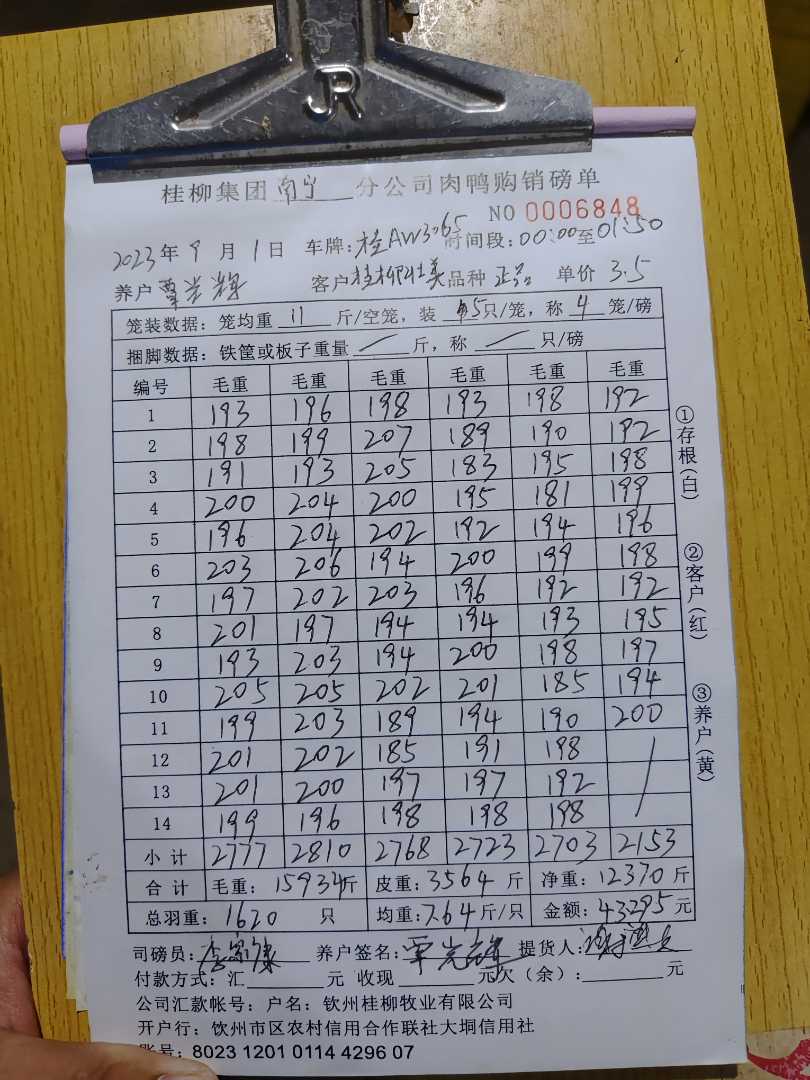 JR
桂柳集团南宁分公司肉鸭购销磅单
NO 0006848
2023年9月1日 车牌:桂AW3065 时间段:00:00至01:50
养户 覃光辉 客户桂柳壮美品种 正品 单价 3.5
笼装数据: 笼均重 11 斤/空笼, 装 5只/笼, 称 4 笼/磅
捆脚数据: 铁筐或板子重量 / 斤, 称 / 只/磅
编号 毛重 毛重 毛重 毛重 毛重 毛重
1 193 196 198 193 198 192
2 198 199 207 189 190 192
3 191 193 205 183 195 198
4 200 204 200 195 181 199
5 196 204 202 192 194 196
6 203 206 194 200 199 198
7 197 202 203 196 192 192
8 201 197 194 194 193 195
9 193 203 194 200 198 197
10 205 205 202 201 185 194
11 199 203 189 194 190 200
12 201 202 185 191 198
13 201 200 197 197 192
14 199 196 198 198 198
小计 2777 2810 2768 2723 2703 2153
合计 毛重: 15934斤 皮重: 3564 斤 净重: 12370 斤
总羽重: 1620 只 均重: 7.64 斤/只 金额: 43295 元
①存根(白)
②客户(红)
③养户(黄)
司磅员: 养户签名: 覃光辉 提货人:
付款方式: 汇 元 收现 元欠(余): 元
公司汇款帐号: 户名: 钦州桂柳牧业有限公司
开户行: 钦州市区农村信用合作联社大垌信用社
账号: 8023 1201 0114 4296 07